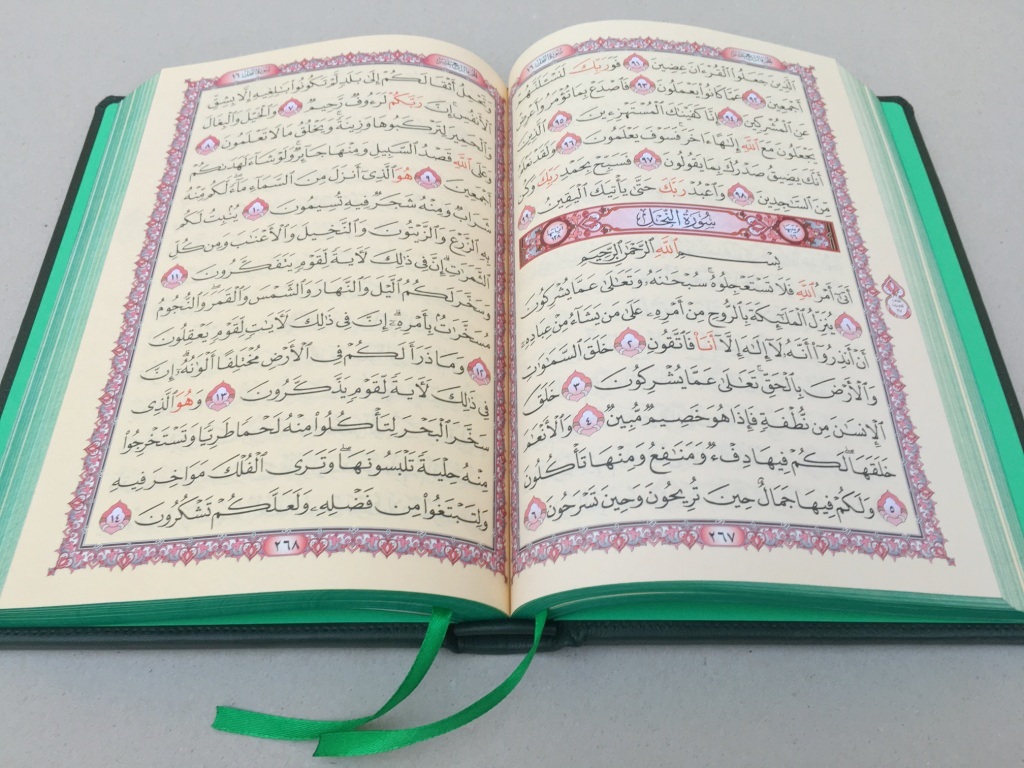 ٱلَّذِينَ جَعَلُوا۟ ٱلْقُرْءَانَ عِضِينَ ٩١ فَوَرَبِّكَ لَنَسْـَٔلَنَّهُمْ
أَجْمَعِينَ ٩٢ عَمَّا كَانُوا۟ يَعْمَلُونَ ٩٣ فَٱصْدَعْ بِمَا تُؤْمَرُ وَأَعْرِضْ
عَنِ ٱلْمُشْرِكِينَ ٩٤ إِنَّا كَفَيْنَٰكَ ٱلْمُسْتَهْزِءِينَ ٩٥ ٱلَّذِينَ
يَجْعَلُونَ مَعَ ٱللَّهِ إِلَٰهًا ءَاخَرَ فَسَوْفَ يَعْلَمُونَ ٩٦ وَلَقَدْ نَعْلَمُ
أَنَّكَ يَضِيقُ صَدْرُكَ بِمَا يَقُولُونَ ٩٧ فَسَبِّحْ بِحَمْدِ رَبِّكَ وَكُن
مِّنَ ٱلسَّٰجِدِينَ ٩٨ وَٱعْبُدْ رَبَّكَ حَتَّىٰ يَأْتِيَكَ ٱلْيَقِينُ ٩٩
سُورَةُ النَّحْلِ
بِسْمِ ٱللَّهِ ٱلرَّحْمَٰنِ ٱلرَّحِيمِ
أَتَىٰٓ أَمْرُ ٱللَّهِ فَلَا تَسْتَعْجِلُوهُ ۚ سُبْحَٰنَهُۥ وَتَعَٰلَىٰ عَمَّا يُشْرِكُونَ
١ يُنَزِّلُ ٱلْمَلَٰٓئِكَةَ بِٱلرُّوحِ مِنْ أَمْرِهِۦ عَلَىٰ مَن يَشَآءُ مِنْ عِبَادِهِۦٓ
أَنْ أَنذِرُوٓا۟ أَنَّهُۥ لَآ إِلَٰهَ إِلَّآ أَنَا۠ فَٱتَّقُونِ ٢ خَلَقَ ٱلسَّمَٰوَٰتِ
وَٱلْأَرْضَ بِٱلْحَقِّ ۚ تَعَٰلَىٰ عَمَّا يُشْرِكُونَ ٣ خَلَقَ
ٱلْإِنسَٰنَ مِن نُّطْفَةٍ فَإِذَا هُوَ خَصِيمٌ مُّبِينٌ ٤ وَٱلْأَنْعَٰمَ
خَلَقَهَا ۗ لَكُمْ فِيهَا دِفْءٌ وَمَنَٰفِعُ وَمِنْهَا تَأْكُلُونَ
٥ وَلَكُمْ فِيهَا جَمَالٌ حِينَ تُرِيحُونَ وَحِينَ تَسْرَحُونَ ٦
٢٦٧
وَتَحْمِلُ أَثْقَالَكُمْ إِلَىٰ بَلَدٍ لَّمْ تَكُونُوا۟ بَٰلِغِيهِ إِلَّا بِشِقِّ
ٱلْأَنفُسِ ۚ إِنَّ رَبَّكُمْ لَرَءُوفٌ رَّحِيمٌ ٧ وَٱلْخَيْلَ وَٱلْبِغَالَ
وَٱلْحَمِيرَ لِتَرْكَبُوهَا وَزِينَةً ۚ وَيَخْلُقُ مَا لَا تَعْلَمُونَ ٨
وَعَلَى ٱللَّهِ قَصْدُ ٱلسَّبِيلِ وَمِنْهَا جَآئِرٌ ۚ وَلَوْ شَآءَ لَهَدَىٰكُمْ
أَجْمَعِينَ ٩ هُوَ ٱلَّذِىٓ أَنزَلَ مِنَ ٱلسَّمَآءِ مَآءً ۖ لَّكُم مِّنْهُ
شَرَابٌ وَمِنْهُ شَجَرٌ فِيهِ تُسِيمُونَ ١٠ يُنۢبِتُ لَكُم
بِهِ ٱلزَّرْعَ وَٱلزَّيْتُونَ وَٱلنَّخِيلَ وَٱلْأَعْنَٰبَ وَمِن كُلِّ
ٱلثَّمَرَٰتِ ۗ إِنَّ فِى ذَٰلِكَ لَءَايَةً لِّقَوْمٍ يَتَفَكَّرُونَ ١١
وَسَخَّرَ لَكُمُ ٱلَّيْلَ وَٱلنَّهَارَ وَٱلشَّمْسَ وَٱلْقَمَرَ ۖ وَٱلنُّجُومُ
مُسَخَّرَٰتٌۢ بِأَمْرِهِۦٓ ۗ إِنَّ فِى ذَٰلِكَ لَءَايَٰتٍ لِّقَوْمٍ يَعْقِلُونَ
١٢ وَمَا ذَرَأَ لَكُمْ فِى ٱلْأَرْضِ مُخْتَلِفًا أَلْوَٰنُهُۥٓ ۗ إِنَّ
فِى ذَٰلِكَ لَءَايَةً لِّقَوْمٍ يَذَّكَّرُونَ ١٣ وَهُوَ ٱلَّذِى
سَخَّرَ ٱلْبَحْرَ لِتَأْكُلُوا۟ مِنْهُ لَحْمًا طَرِيًّا وَتَسْتَخْرِجُوا۟
مِنْهُ حِلْيَةً تَلْبَسُونَهَا ۖ وَتَرَى ٱلْفُلْكَ مَوَاخِرَ فِيهِ
وَلِتَبْتَغُوا۟ مِن فَضْلِهِۦ وَلَعَلَّكُمْ تَشْكُرُونَ ١٤
٢٦٨